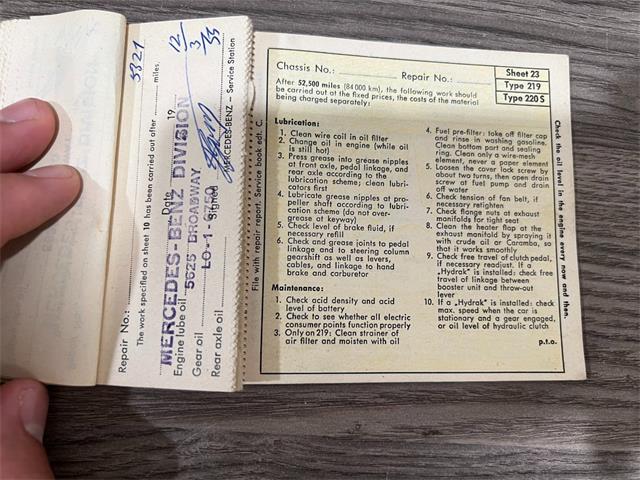 Repair No.:
The work specified on sheet 10 has been carried out after 5321 miles.
Date 12/3/55 19
MERCEDES-BENZ DIVISION
Engine lube oil
5625 BROADWAY
Gear oil
LO-1-6750
Rear axle oil
Signed
MERCEDES-BENZ — Service Station
File with repair report. Service book edt. C.
Chassis No.: Repair No.:
Sheet 23
Type 219
Type 220 S
After 52,500 miles (84 000 km), the following work should
be carried out at the fixed prices, the costs of the material
being charged separately:
Lubrication:
1. Clean wire coil in oil filter
2. Change oil in engine (while oil
is still hot)
3. Press grease into grease nipples
at front axle, pedal linkage, and
rear axle according to the
lubrication scheme; clean lubri-
cators first
4. Lubricate grease nipples at pro-
peller shaft according to lubri-
cation scheme (do not over-
grease at keyway)
5. Check level of brake fluid, if
necessary refill
6. Check and grease joints to pedal
linkage and to steering column
gearshift as well as levers,
cables, and linkage to hand
brake and carburetor
Maintenance:
1. Check acid density and acid
level of battery
2. Check to see whether all electric
consumer points function properly
3. Only on 219: Clean strainer of
air filter and moisten with oil
4. Fuel pre-filter: take off filter cap
and rinse in washing gasoline.
Clean bottom part and sealing
ring. Clean only a wire-mesh
element, never a paper element
5. Loosen the cover lock screw by
about two turns, then open drain
screw at fuel pump and drain
off water
6. Check tension of fan belt, if
necessary retighten
7. Check flange nuts at exhaust
manifolds for tight seat
8. Clean the heater flap at the
exhaust manifold by spraying it
with crude oil or Caramba, so
that it works smoothly
9. Check free travel of clutch pedal,
if necessary readjust. If a
„Hydrak" is installed: check free
travel of linkage between
booster unit and throw-out
lever
10. If a „Hydrak" is installed: check
max. speed when the car is
stationary and a gear engaged,
or oil level of hydraulic clutch
p.t.o.
Check the oil level in the engine every now and then.